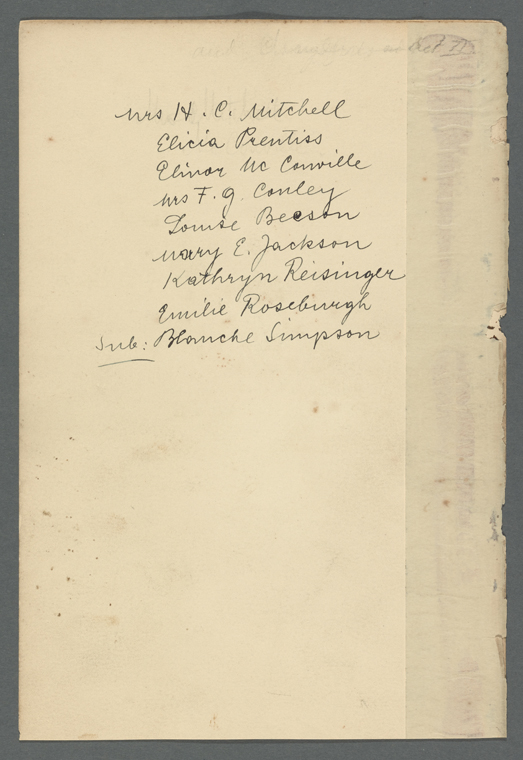 Mrs H. C. Mitchell
Elicia Prentiss
Elinor Mc Conville
Mrs F. G. Conley
Louise Beeson
Mary E. Jackson
Kathryn Reisinger
Emilie Roseburgh
Sub: Blanche Simpson